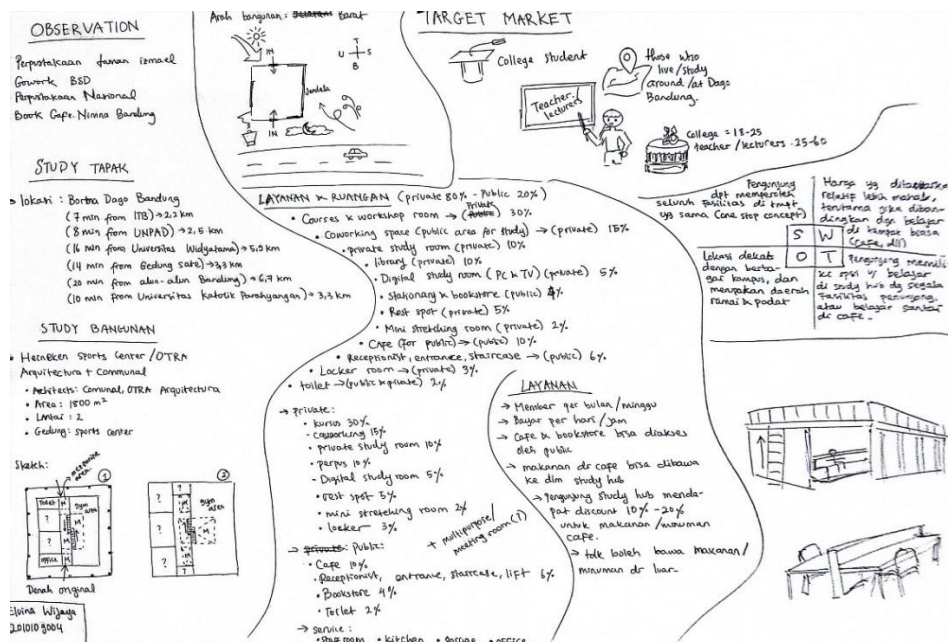 OBSERVATION
Perpustakaan taman ismael
Gowork BSD
Perpustakaan Nasional
Book Cafe. Nimna Bandung
STUDY TAPAK
lokasi : Borma Dago Bandung
(7 min from ITB) → 2,2 km
(8 min from UNPAD) → 2,5 km
(16 min from Universitas Widyatama) → 5,9 km
(14 min from Gedung sate) → 3,3 km
(20 min from alun-alun Bandung) → 6,7 km
(10 min from Universitas Katolik Parahyangan) → 3,3 km
STUDY BANGUNAN
• Heineken Sports Center / OTRA
Arquitectura + Communal
• Architects: Comunal, OTRA Arquitectura
• Area : 1800 m²
• Lantai : 2
• Gedung : sports center
Sketch:
receptionist area
①
Toilet
M
Gym area
?
?
office
M
②
?
?
?
?
Gym area
Denah original
Elvina Wijaya
Arah bangunan : Selatan Barat
T
U S
B
IN
Jendela
IN
TARGET MARKET
College student
those who
live/study
around/at Dago
Bandung.
Teacher
lecturers
College = 18-25
teacher/lecturers . 25-60
LAYANAN & RUANGAN (private 80% - Public 20%)
Private
• Courses & workshop room → (Public) 30%
• Coworking space (public area for study) → (private) 15%
• private study room (private) 10%
• library (private) 10%
• Digital study room (PC & TV) (private) 5%
• stationary & bookstore (public) 4%
• Rest spot (private) 5%
• Mini stretching room (private) 2%
• Cafe (for public) → (public) 10%
• Receptionist, entrance, staircase → (public) 6%
• Locker room → (private) 3%
• toilet → (public & private) 2%
→ private :
• kursus 30%
- coworking 15%
• private study room 10%
• perpus 10%
- Digital study room 5%
• rest spot 5%
• mini stretching room 2%
• locker 3%
+ multipurpose/
meeting room (?)
→ private: Public:
• Cafe 10%
• Receptionist, entrance, staircase, lift 6%
• Bookstore 4%
• Toilet 2%
→ service :
• Staff room • kitchen • Garage • office
LAYANAN
→ Member per bulan / minggu
→ Bayar per hari / jam
→ Cafe & bookstore bisa diakses
oleh public
→ makanan dr cafe bisa dibawa
ke dlm study hub
→ Pengunjung study hub menda-
pat discount 10% - 20%
untuk makanan / minuman
cafe.
→ tdk boleh bawa makanan /
minuman dr luar.
Pengunjung
dpt memperoleh
seluruh fasilitas di tmpt
yg sama (one stop concept)
Harga yg ditawarkan
relatif lebih mahal,
terutama jika diban-
dingkan dgn belajar
di tempat biasa
(cafe, dll)
S W
O T
Lokasi dekat
dengan berba-
gai kampus, dan
merupakan daerah
ramai & padat
Pengunjung memili-
ki opsi u/ belajar
di study hub dg segala
fasilitas penunjang,
atau belajar santai
di cafe.